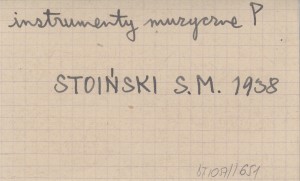 instrumenty muzyczne P
STOIŃSKI S.M. 1938